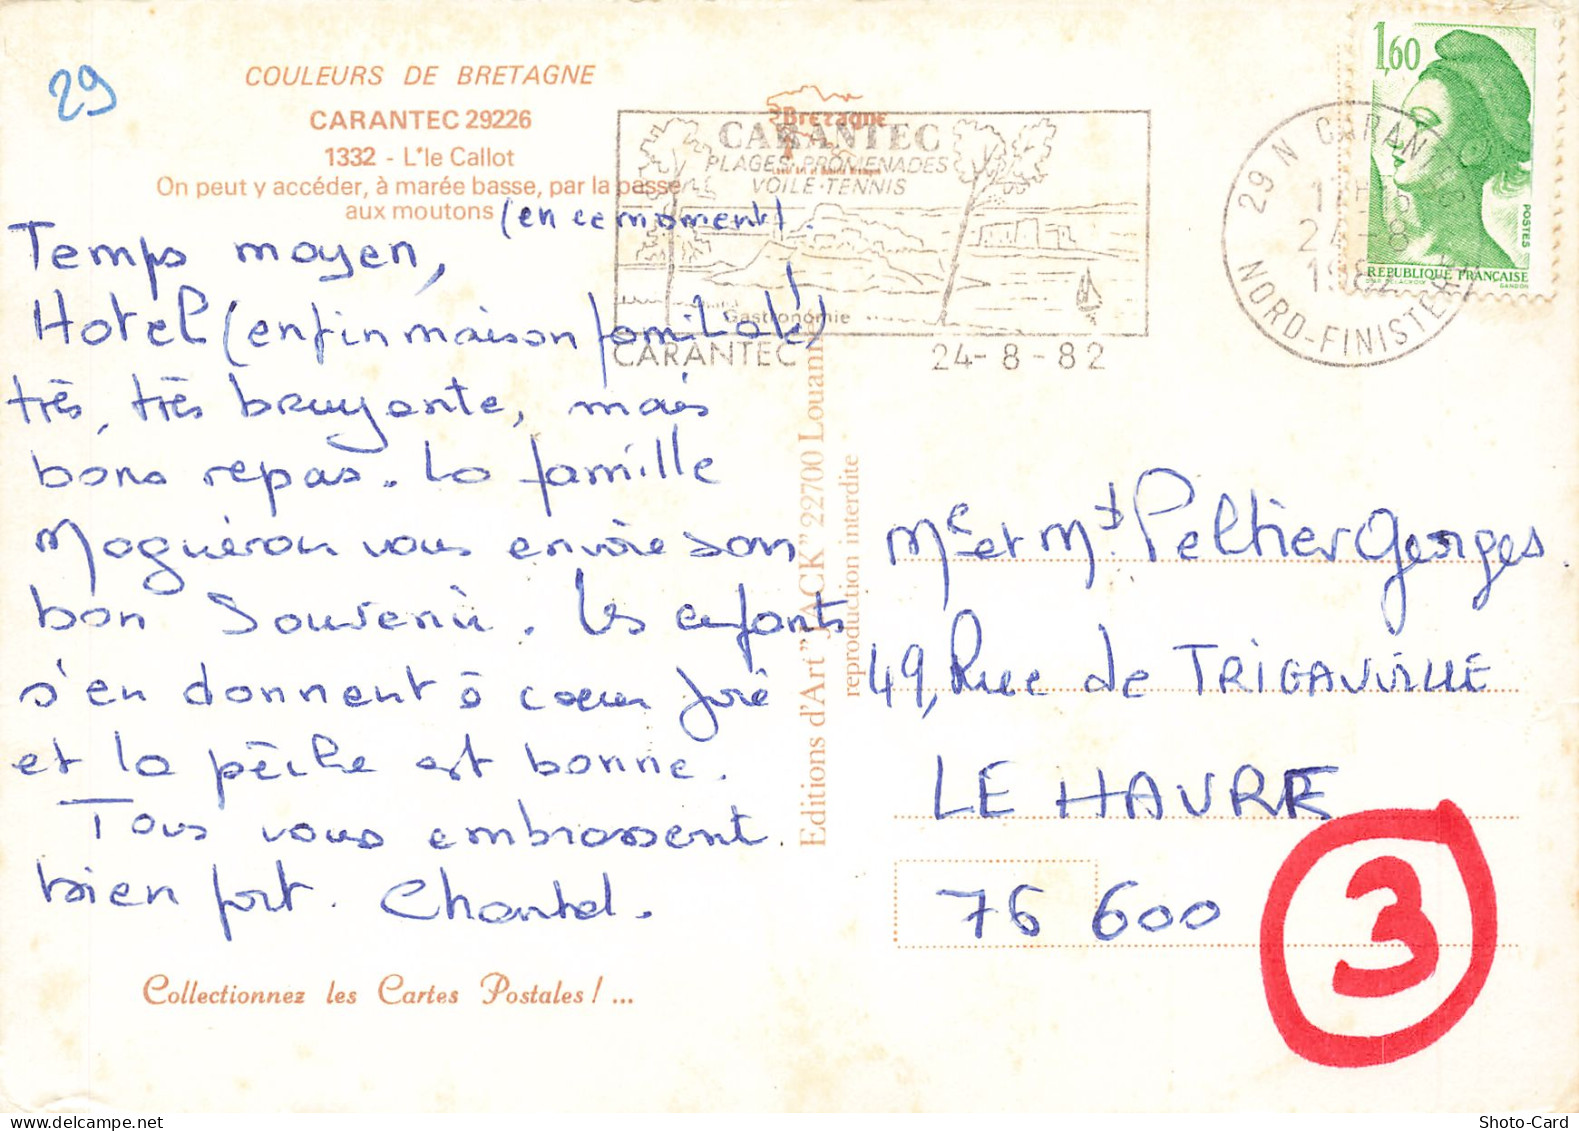 29
COULEURS DE BRETAGNE
CARANTEC 29226
1332 - L'le Callot
On peut y accéder, à marée basse, par la passe
aux moutons
Bretagne
CARANTEC
PLAGES-PROMENADES
VOILE-TENNIS
Gastronomie
CARANTEC 24-8-82
29 N CARANTEC
24-8
NORD-FINISTERE
1,60
POSTES
REPUBLIQUE FRANÇAISE
GANDON
(en ce moment).
Temps moyen,
Hotel (enfin maison familiale!)
très, très bruyante, mais
bons repas. La famille
Moguérou vous envoie son
bon souvenir. Les enfants
s'en donnent à coeur joie
et la pêche est bonne.
Tous vous embrassent
bien fort. Chantal.
Collectionnez les Cartes Postales ! ...
Editions d'Art "JACK" 22700 Louann
reproduction interdite
Mr et Md Peltier Georges
49, Rue de TRIGAUVILLE
LE HAVRE
76 600
3
Shoto-Card